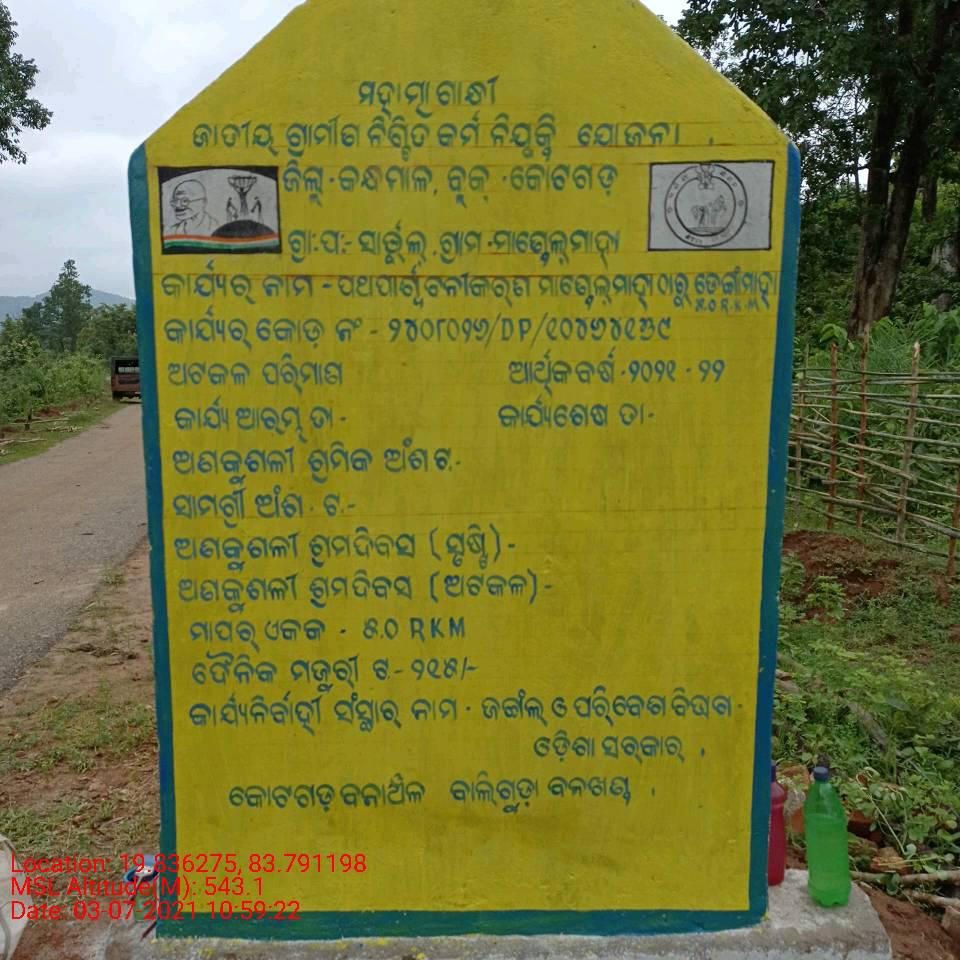 ମହାତ୍ମା ଗାନ୍ଧୀ
ଜାତୀୟ ଗ୍ରାମୀଣ ନିଶ୍ଚିତ କର୍ମ ନିଯୁକ୍ତି ଯୋଜନା .
ଜିଲ୍ଲା-କନ୍ଧମାଳ, ବ୍ଲକ୍-କୋଟଗଡ଼
ଗ୍ରା:ପ:- ଗ୍ରାମ-
କାର୍ଯ୍ୟର ନାମ - ପଥପାର୍ଶ୍ୱବନୀକରଣ ଠାରୁ
୫.୦ R.K.M
କାର୍ଯ୍ୟର କୋଡ଼ ନଂ - ୨୪୦୮୦୨୬/DP/୧୦୪୬୪୧୩୯
ଅଟକଳ ପରିମାଣ ଆର୍ଥିକ ବର୍ଷ-୨୦୨୧-୨୨
କାର୍ଯ୍ୟ ଆରମ୍ଭ ତା- କାର୍ଯ୍ୟଶେଷ ତା-
ଅଣକୁଶଳୀ ଶ୍ରମିକ ଅଂଶ ଟ.-
ସାମଗ୍ରୀ ଅଂଶ - ଟ.-
ଅଣକୁଶଳୀ ଶ୍ରମଦିବସ (ସୃଷ୍ଟି)-
ଅଣକୁଶଳୀ ଶ୍ରମଦିବସ (ଅଟକଳ)-
ମାପର ଏକକ - ୫.୦ RKM
ଦୈନିକ ମଜୁରୀ ଟ.- ୨୧୫/-
କାର୍ଯ୍ୟନିର୍ବାହୀ ସଂସ୍ଥାର ନାମ - ଜଙ୍ଗଲ ଓ ପରିବେଶ ବିଭାଗ-
ଓଡ଼ିଶା ସରକାର .
କୋଟଗଡ଼ ବନାଞ୍ଚଳ ବାଲିଗୁଡ଼ା ବନଖଣ୍ଡ .
Location: 19.836275, 83.791198
MSL Altitude(M): 543.1
Date: 03-07-2021 10:59:22